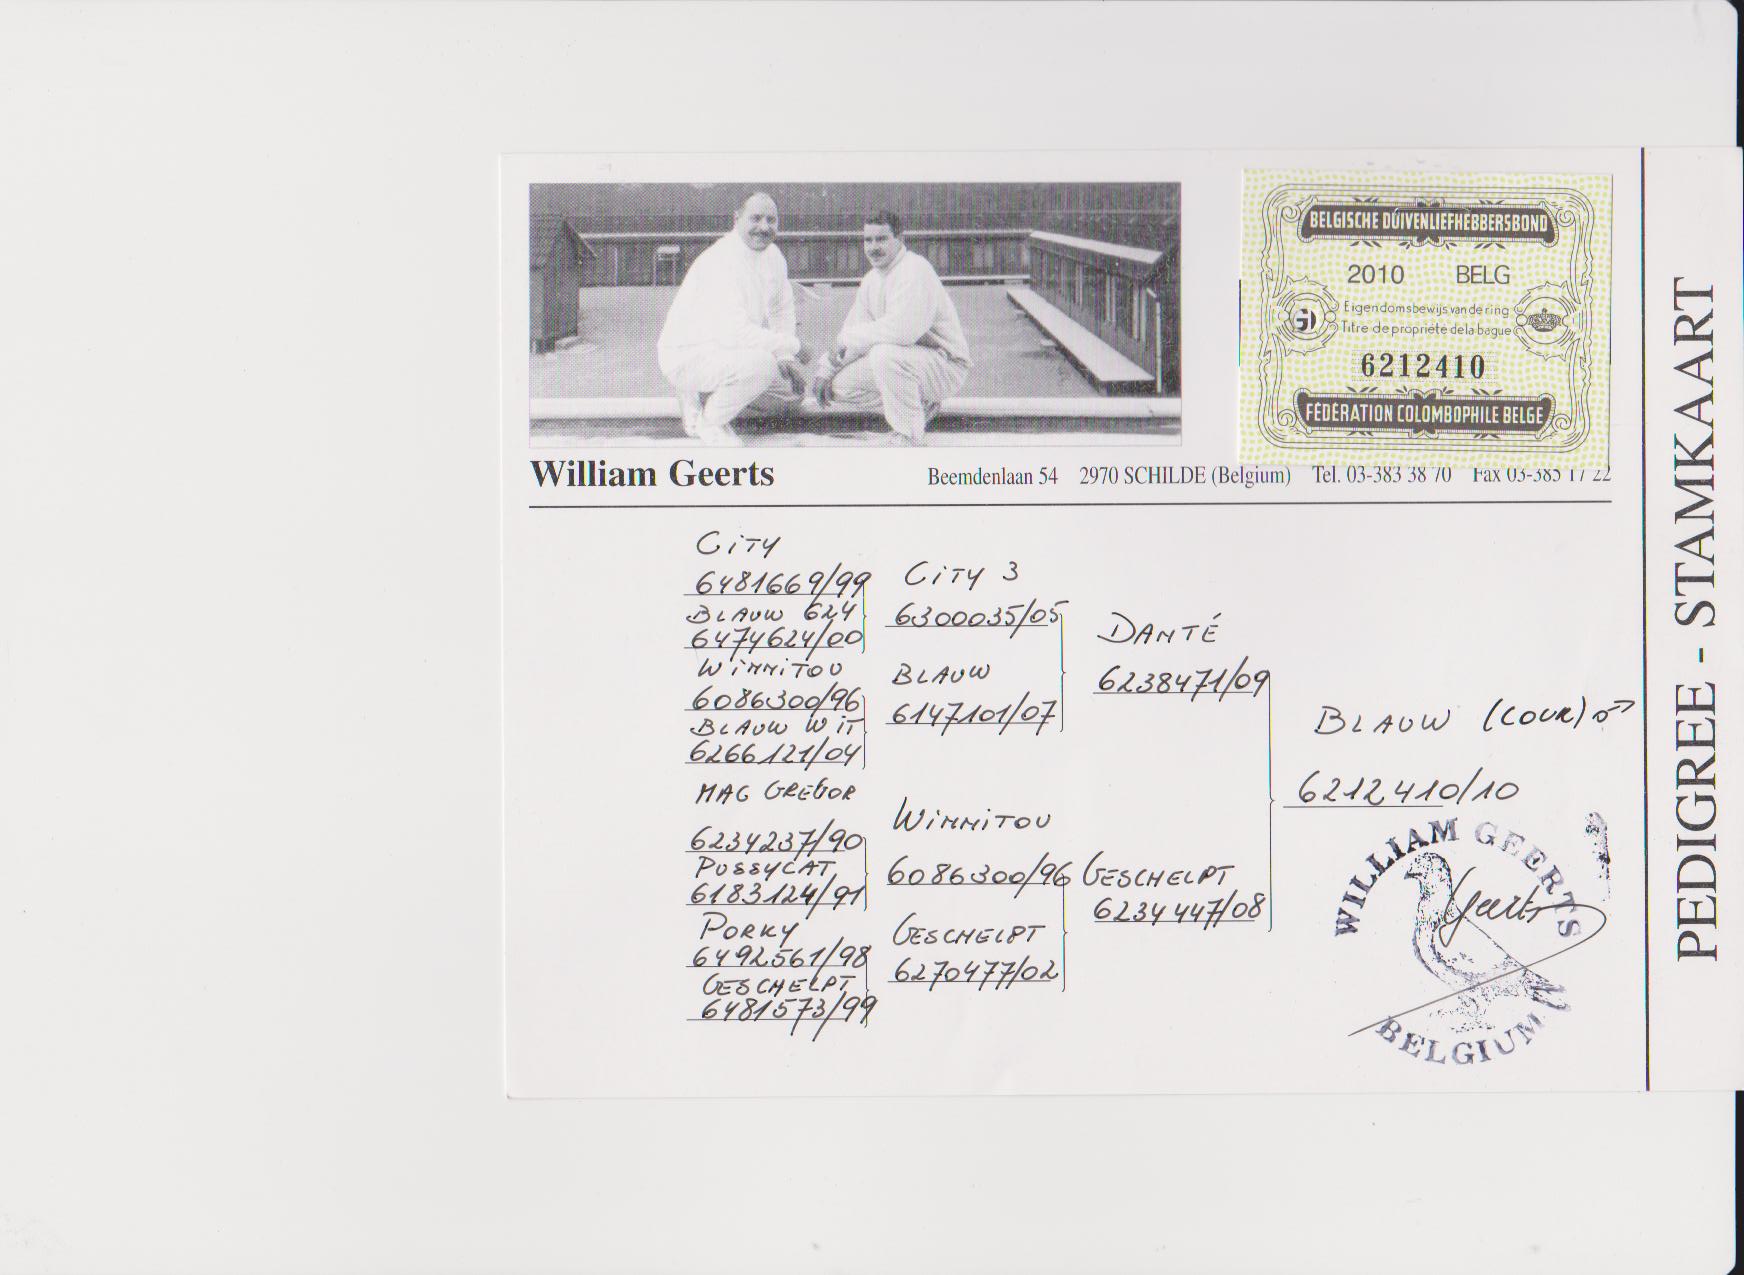 BELGISCHE DUIVENLIEFHEBBERSBOND
2010 BELG
Eigendomsbewijs van de ring
Titre de propriété de la bague
6212410
FÉDÉRATION COLOMBOPHILE BELGE
William Geerts
Beemdenlaan 54 2970 SCHILDE (Belgium) Tel. 03-383 38 70 Fax 03-385 17 22
CITY
6481669/99
BLAUW 624
6474624/00
WINNITOU
6086300/96
BLAUW WIT
6266121/04
MAC GREGOR
6234237/90
PUSSYCAT
6183124/91
PORKY
6492561/98
GESCHELPT
6481573/99
CITY 3
6300035/05
BLAUW
6147101/07
WINNITOU
6086300/96
GESCHELPT
6270477/02
DANTÉ
6238471/09
GESCHELPT
6234447/08
BLAUW (COUR) ♂
6212410/10
WILLIAM GEERTS
Geerts
BELGIUM
PEDIGREE - STAMKAART